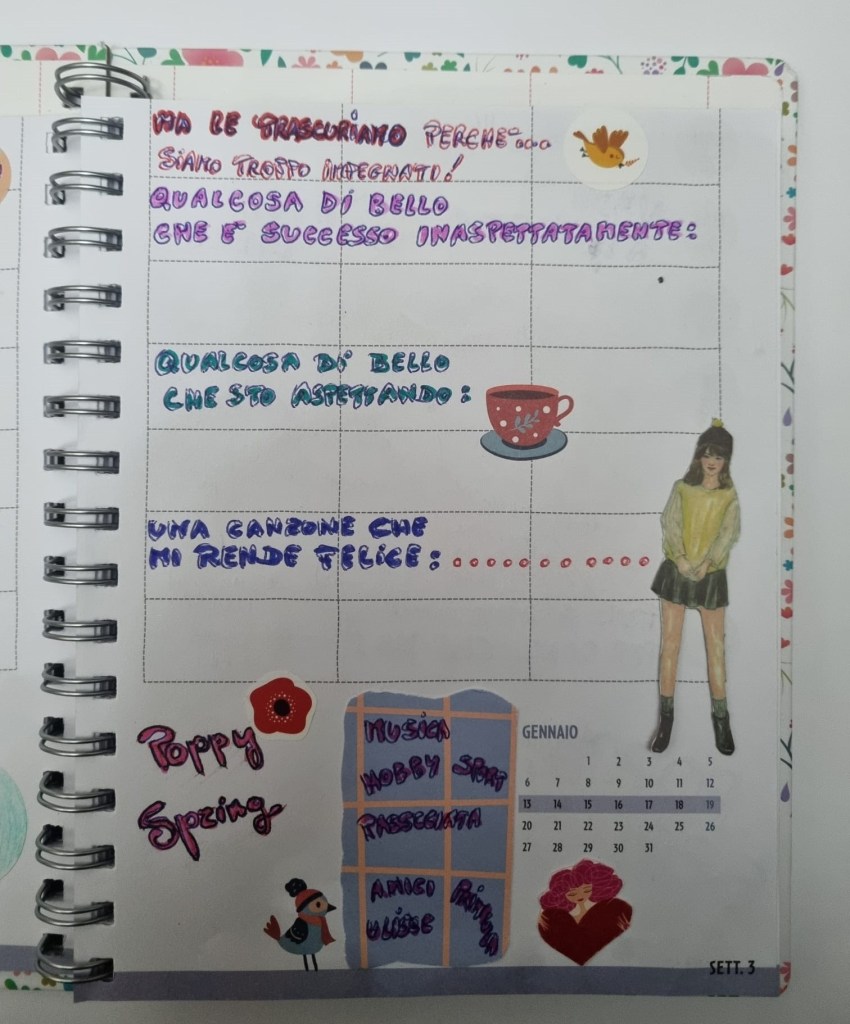 MA LE TRASCURIAMO PERCHE'...
SIAMO TROPPO IMPEGNATI!
QUALCOSA DI BELLO
CHE E' SUCCESSO INASPETTATAMENTE:
QUALCOSA DI BELLO
CHE STO ASPETTANDO:
UNA CANZONE CHE
MI RENDE FELICE: . . . . . . . . . .
Poppy
Spring
MUSICA
HOBBY SPORT
PASSEGGIATA
AMICI
ULISSE
GENNAIO
1 2 3 4 5
6 7 8 9 10 11 12
13 14 15 16 17 18 19
20 21 22 23 24 25 26
27 28 29 30 31
SETT. 3